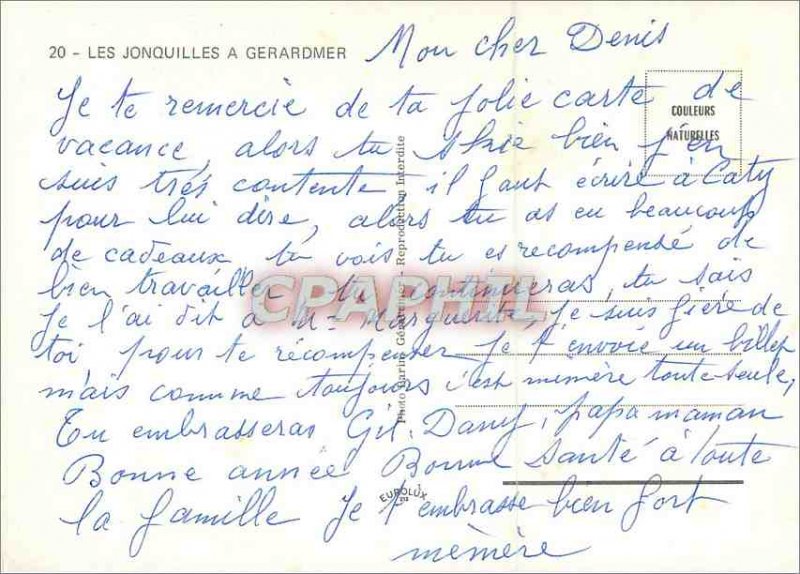 20 - LES JONQUILLES A GERARDMER
Mon cher Denis
Je te remercie de ta jolie carte de
vacance, alors tu skie bien j'en
suis très contente il faut écrire à Caty
pour lui dire, alors tu as eu beaucoup
de cadeaux tu vois tu es recompensé de
bien travailler tu continueras, tu sais
Je l'ai dit à Me Marguerite, je suis fière de
toi pour te récompenser je t'envoie un billet
mais comme toujours c'est mémère toute seule,
Tu embrasseras Gil. Dany, papa maman
Bonne année Bonne santé à toute
la famille Je t'embrasse bien fort
mémère
COULEURS
NATURELLES
Reproduction Interdite
EUROLUX
CPAPHIL